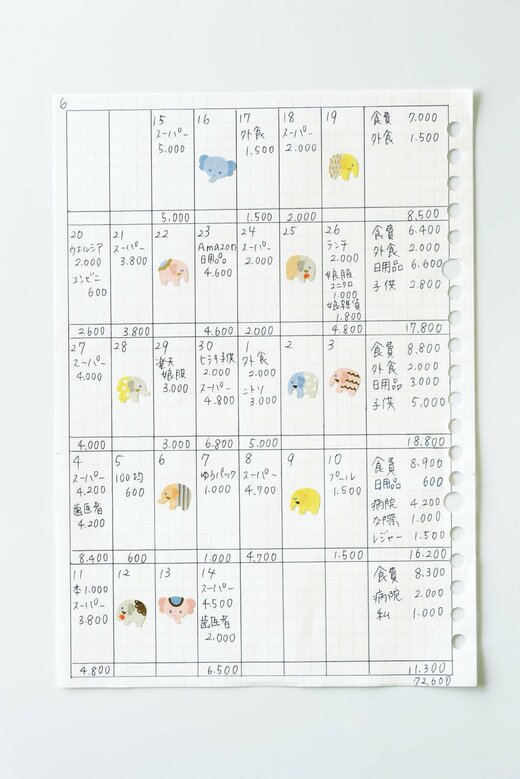 6
15
スーパー
5.000
16
17
外食
1.500
18
スーパー
2.000
19
食費 7.000
外食 1.500
5.000
1.500
2.000
8,500
20
ウエルシア
2.000
コンビニ
600
21
スーパー
3.800
22
23
Amazon
日用品
4.600
24
スーパー
2.000
25
26
ランチ
2.000
娘服
ユニクロ
1.000
娘雑貨
1.800
食費 6.400
外食 2.000
日用品 6.600
子供 2.800
2600
3.800
4.600
2.000
4.800
17.800
27
スーパー
4.000
28
29
楽天
娘服
3.000
30
ヒラキ子供
2.000
スーパー
4.800
1
外食
2.000
ニトリ
3.000
2
3
食費 8,800
外食 2.000
日用品 3.000
子供 5.000
4,000
3.000
6.800
5.000
18.800
4
スーパー
4.200
歯医者
4.200
5
100均
600
6
7
ゆうパック
1.000
8
スーパー
4.700
9
10
プール
1.500
食費 8,900
日用品 600
病院 4.200
交際 1.000
レジャー 1.500
8.400
600
1.000
4.700
1.500
16.200
11
本1.000
スーパー
3.800
12
13
14
スーパー
4.500
歯医者
2.000
食費 8,300
病院 2.000
私 1.000
4.800
6.500
11.300
72,600